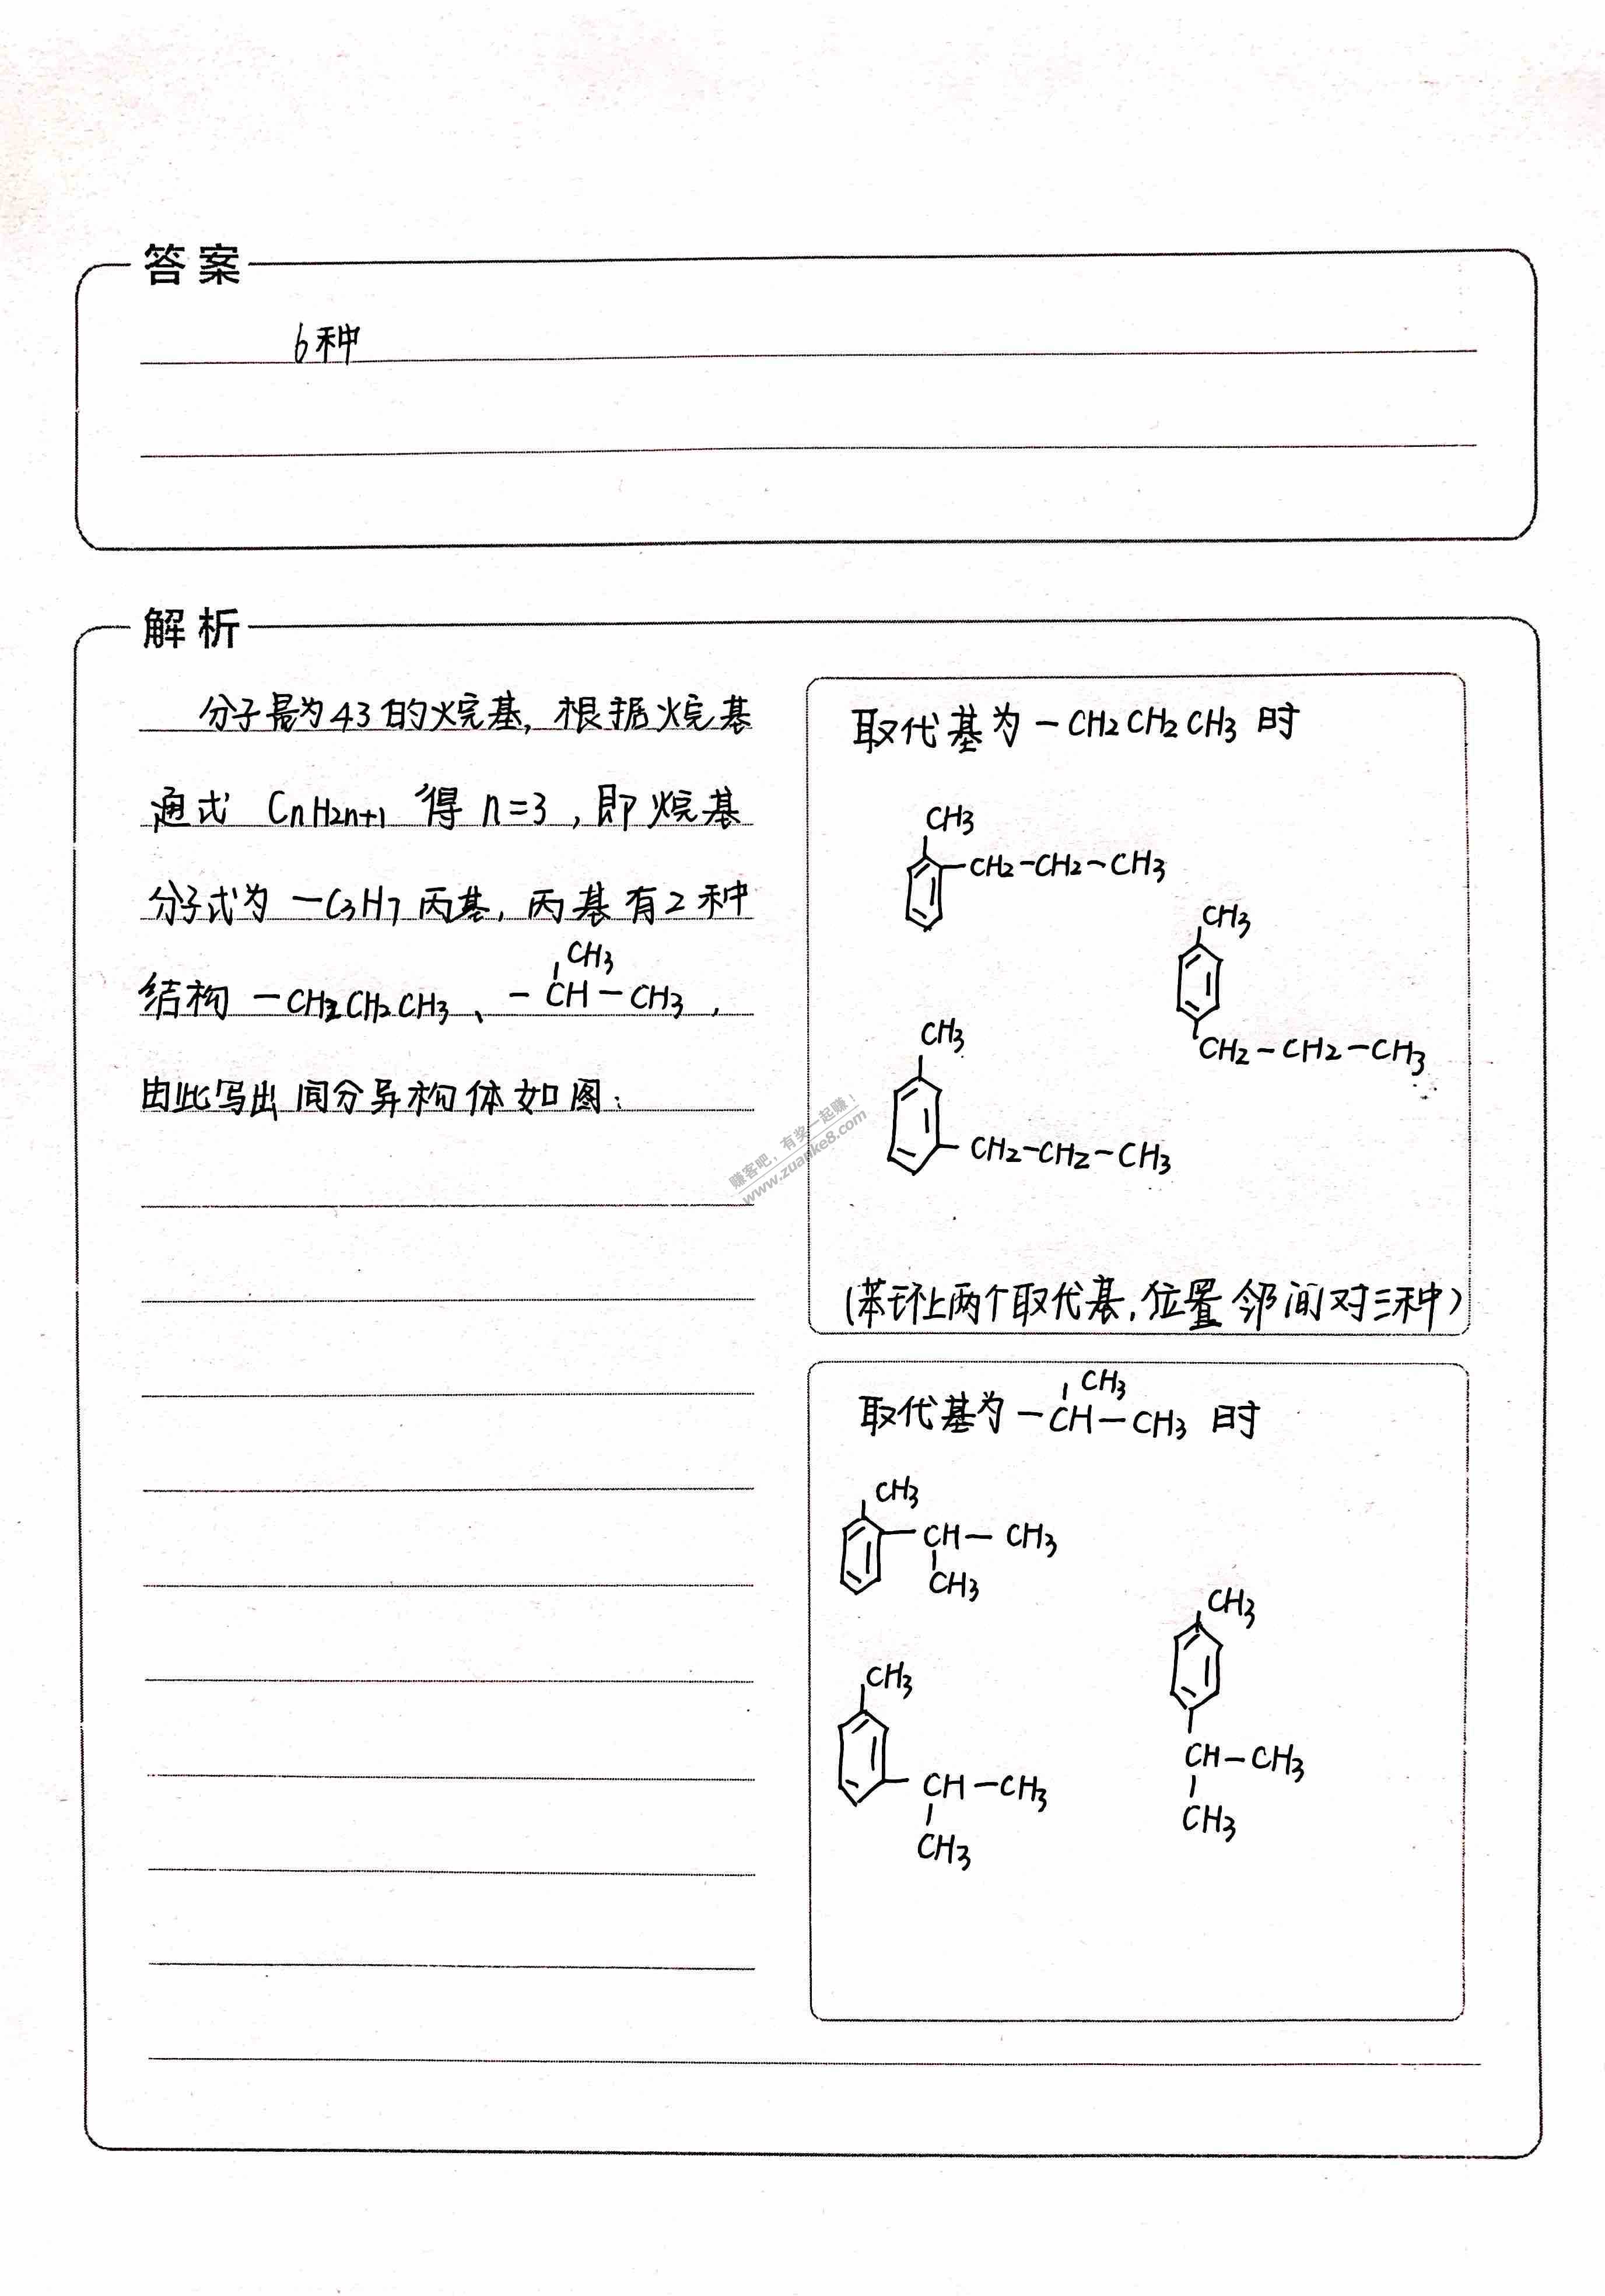 答案
6种
解析
分子量为43的烷基,根据烷基
通式 CnH2n+1 得 n=3,即烷基
分子式为 -C3H7 丙基,丙基有2种
CH3
结构 -CH2CH2CH3、-CH-CH3,
由此写出同分异构体如图:
取代基为-CH2CH2CH3时
CH3
CH2-CH2-CH3
CH3
CH2-CH2-CH3
CH3
CH2-CH2-CH3
(苯环上两个取代基,位置邻间对三种)
CH3
取代基为-CH-CH3 时
CH3
CH-CH3
CH3
CH3
CH-CH3
CH3
CH3
CH-CH3
CH3
赚客吧,有奖一起赚!
www.zuanke8.com